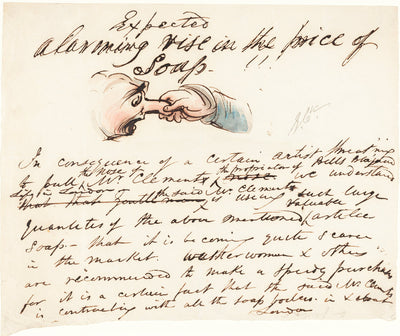 Expected
alarming rise in the price of
Soap - !!
In consequence of a certain artist threat'ning
to pull the nose of Mr Clements the proprietor of Bells
Life in London we understand
that the said Mr Clements is using such large
quantities of the above mentioned valuable article
Soap - that it is becoming quite scarce
in the market. Washerwomen & others
are recommended to make a speedy purchase
for it is a certain fact that the said Mr Clements
is contracting with all the soap boilers in & about
London